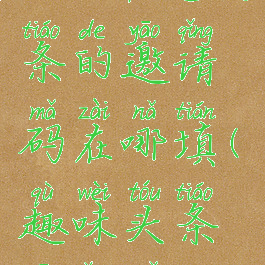 tiáo de yāo qǐng
条的邀请
mǎ zài nǎ tián
码在哪填(
qù wèi tóu tiáo
趣味头条